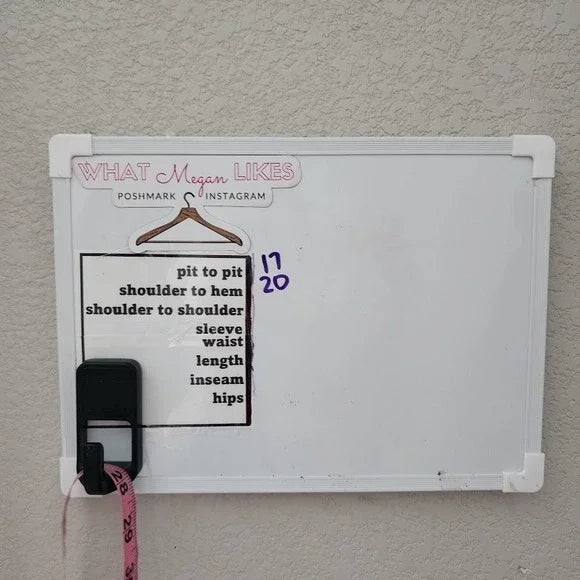 WHAT Megan LIKES
POSHMARK INSTAGRAM
pit to pit 17
shoulder to hem 20
shoulder to shoulder
sleeve
waist
length
inseam
hips
28
29